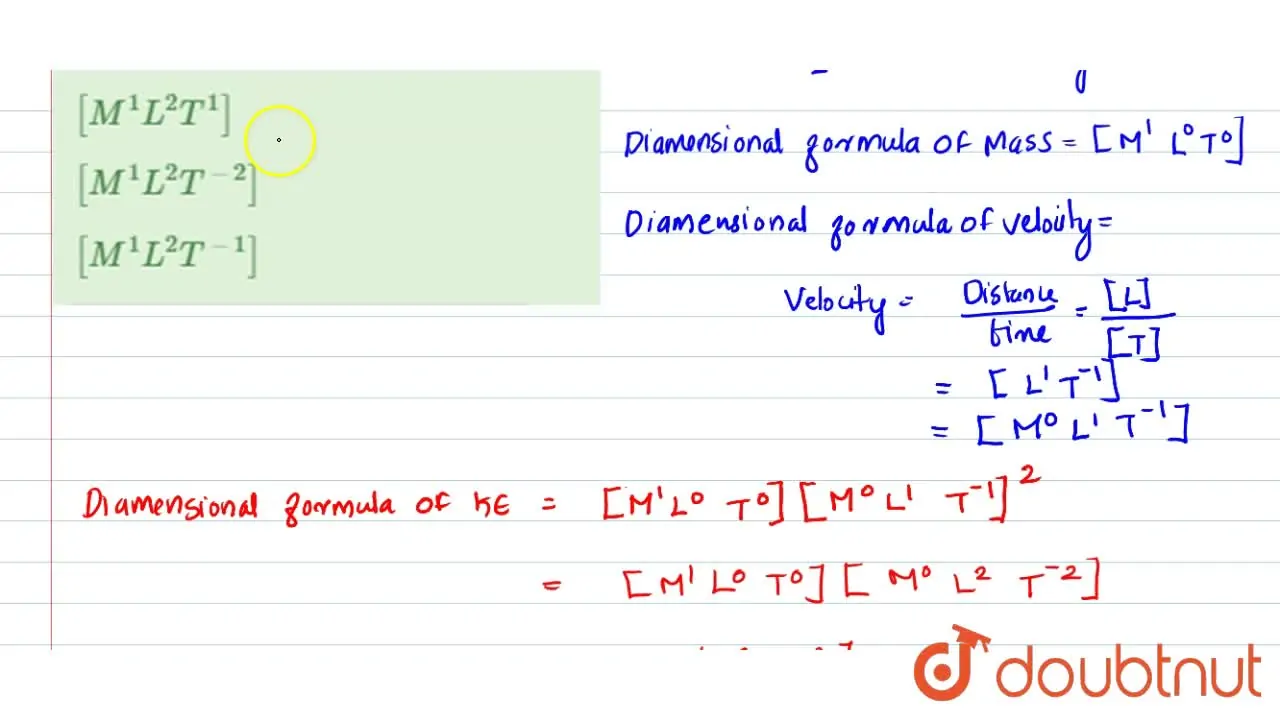 [M¹L²T¹]
[M¹L²T⁻²]
[M¹L²T⁻¹]
Diamensional formula of Mass = [M¹ L⁰ T⁰]
Diamensional formula of velocity =
Velocity = Distance / time = [L] / [T]
= [L¹ T⁻¹]
= [M⁰ L¹ T⁻¹]
Diamensional formula of KE = [M¹ L⁰ T⁰] [M⁰ L¹ T⁻¹]²
= [M¹ L⁰ T⁰] [M⁰ L² T⁻²]
doubtnut